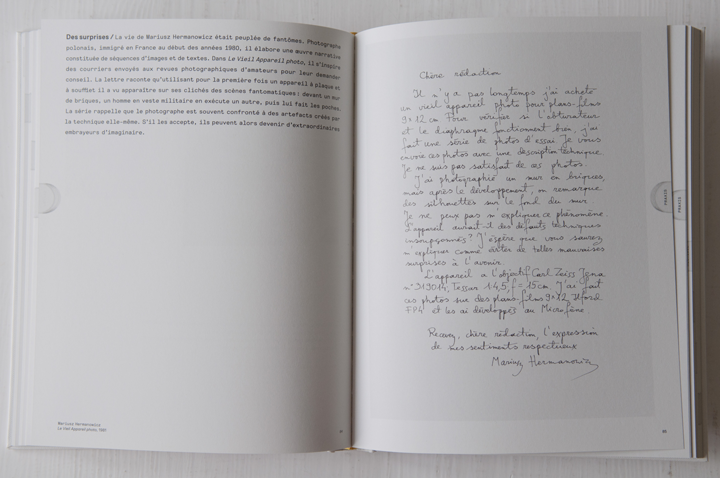 Des surprises / La vie de Mariusz Hermanowicz était peuplée de fantômes. Photographe
polonais, immigré en France au début des années 1980, il élabore une œuvre narrative
constituée de séquences d'images et de textes. Dans Le Vieil Appareil photo, il s'inspire
des courriers envoyés aux revues photographiques d'amateurs pour leur demander
conseil. La lettre raconte qu'utilisant pour la première fois un appareil à plaque et
à soufflet il a vu apparaître sur ses clichés des scènes fantomatiques : devant un mur
de briques, un homme en veste militaire en exécute un autre, puis lui fait les poches.
La série rappelle que le photographe est souvent confronté à des artefacts créés par
la technique elle-même. S'il les accepte, ils peuvent alors devenir d'extraordinaires
embrayeurs d'imaginaire.
Mariusz Hermanowicz
Le Vieil Appareil photo, 1981
Chère rédaction
Il n'y a pas longtemps j'ai acheté
un vieil appareil photo pour plans-films
9×12 cm. Pour vérifier si l'obturateur
et le diaphragme fonctionnent bien, j'ai
fait une série de photos d'essai. Je vous
envoie ces photos avec une description technique.
Je ne suis pas satisfait de ces photos.
J'ai photographié un mur en briques,
mais après le développement, on remarque
des silhouettes sur le fond du mur.
Je ne peux pas m'expliquer ce phénomène.
L'appareil aurait-il des défauts techniques
insoupçonnés? J'espère que vous saurez
m'expliquer comme éviter de telles mauvaises
surprises à l'avenir.
L'appareil a l'objectif Carl Zeiss Jena
n° 919014, Tessar 1:4,5, f = 15cm. J'ai fait
ces photos sur des plans-films 9×12 Ilford
FP4 et les ai développés au Microfène.
Recevez, chère rédaction, l'expression
de mes sentiments respectueux
Mariusz Hermanowicz
85
PRAXIS
PRAXIS